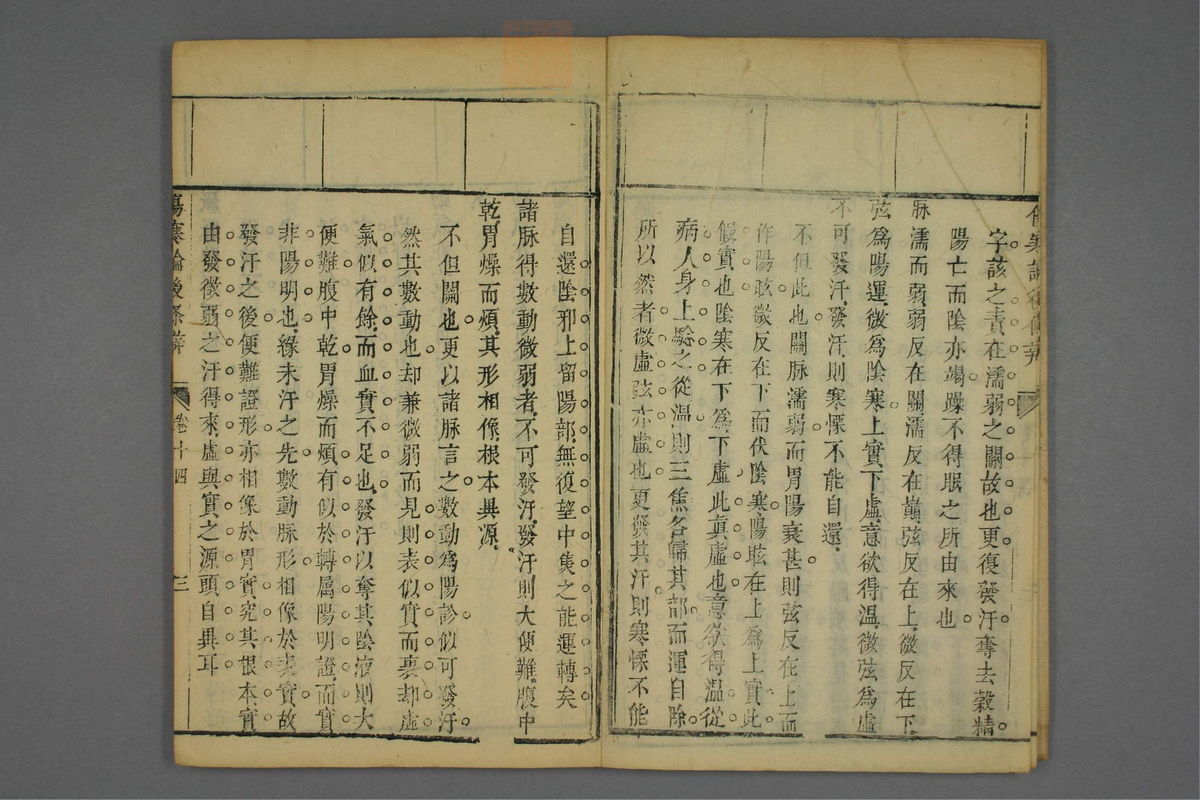 字該之責在濡弱之關故也更復發汗奪去穀精
陽亡而陰亦竭躁不得眠之所由來也
脉濡而弱弱反在關濡反在巔弦反在上微反在下
弦為陽運微為陰寒上實下虛意欲得溫微弦為虛
不可發汗發汗則寒慄不能自還
不但此也關脉濡弱而胃陽衰甚則弦反在上而
作陽眩微反在下而伏陰寒陽眩在上為上實此
假實也陰寒在下為下虛此真虛也意欲得溫從
病人身上驗之從溫則三焦各歸其部而運自除
所以然者微虛弦亦虛也更發其汗則寒慄不能
自還陰邪上留陽部無復望中焦之能運轉矣
諸脉得數動微弱者不可發汗發汗則大便難腹中
乾胃燥而煩其形相像根本異源
不但關也更以諸脉言之數動為陽診似可發汗
然其數動也却兼微弱而見則表似實而裏却虛
氣似有餘而血實不足也發汗以奪其陰液則大
便難腹中乾胃燥而煩有似於轉屬陽明證而實
非陽明也緣未汗之先數動脉形相像於表實故
發汗之後便難證形亦相像於胃實究其根本實
由發微弱之汗得來虛與實之源頭自異耳
傷寒論後條辨 卷十四 三